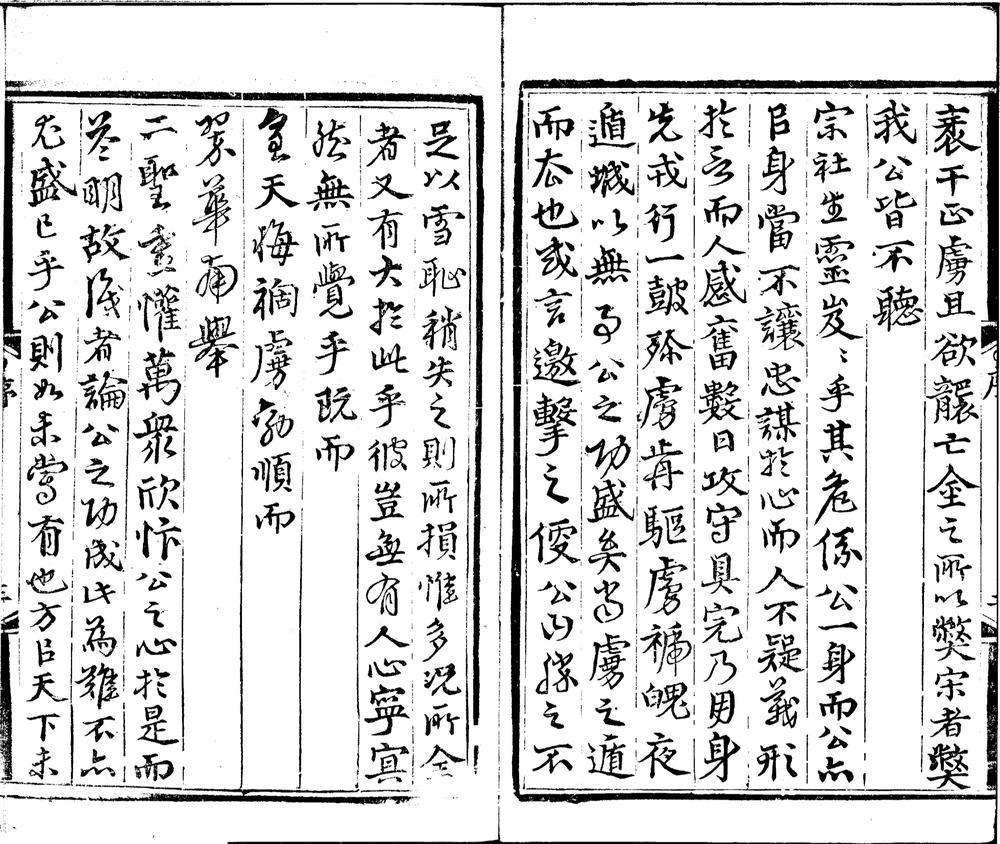 裘干正虜且欲襲亡金之所以獘宋者獘
我公皆不聽
宗社生靈岌〻乎其危係公一身而公亦
㠯身當不讓忠謀於心而人不疑義形
於言而人感奮數日攻守具完乃用身
先戎行一鼓殄虜再驅虜褫魄夜
遁城以無事公之功盛矣當虜之遁
而去也或言邀擊之便公曰勝之不
足以雪恥稍失之則所損惟多況所全
者又有大於此乎彼豈無有人心寧冥
然無所覺乎既而
皇天悔禍虜効順而
翠華南舉
二聖喜懽萬衆欣忭公之心於是而
益明故識者論公之功成此為難不亦
尤盛㠯乎公則如未嘗有也方㠯天下未
序